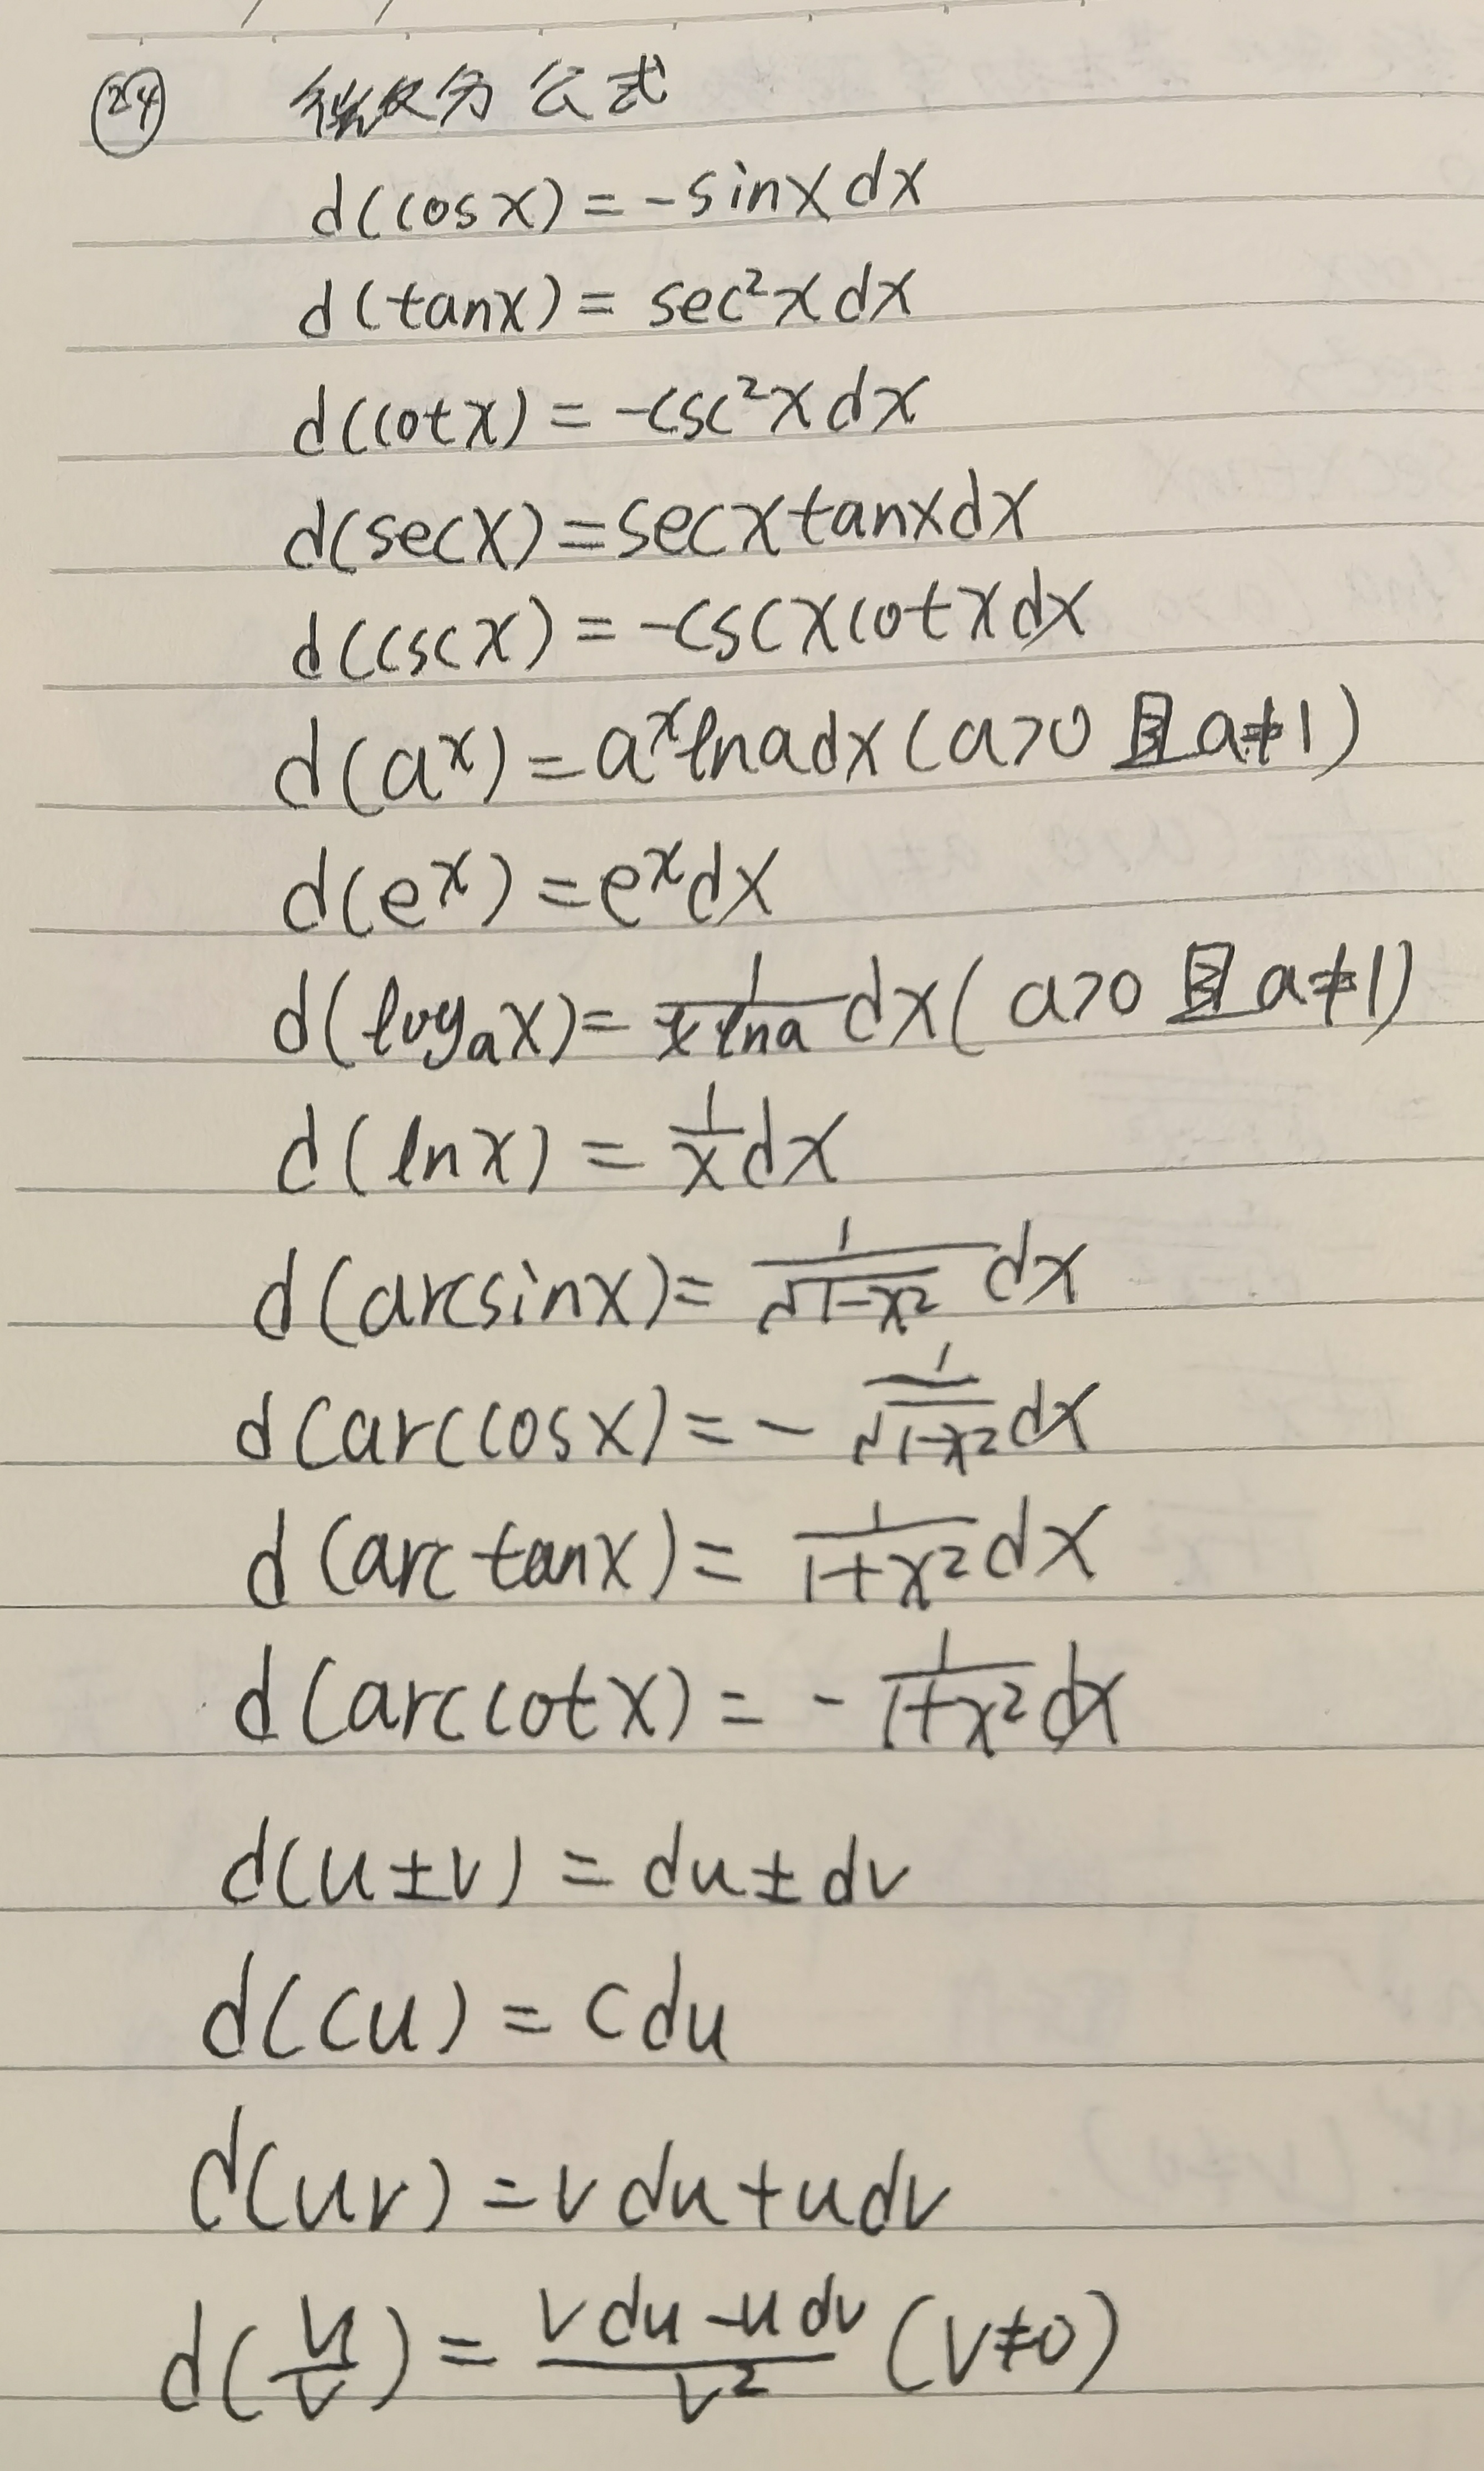 ㉔ 微分公式
d(cosx)=-sinxdx
d(tanx)=sec²xdx
d(cotx)=-csc²xdx
d(secx)=secxtanxdx
d(cscx)=-cscxcotxdx
d(aˣ)=aˣlnadx(a>0且a≠1)
d(eˣ)=eˣdx
d(logₐx)=1/(xlna)dx(a>0且a≠1)
d(lnx)=1/x dx
d(arcsinx)=1/√(1-x²)dx
d(arccosx)=-1/√(1-x²)dx
d(arctanx)=1/(1+x²)dx
d(arccotx)=-1/(1+x²)dx
d(u±v)=du±dv
d(cu)=cdu
d(uv)=vdu+udv
d(u/v)=(vdu-udv)/v²(v≠0)